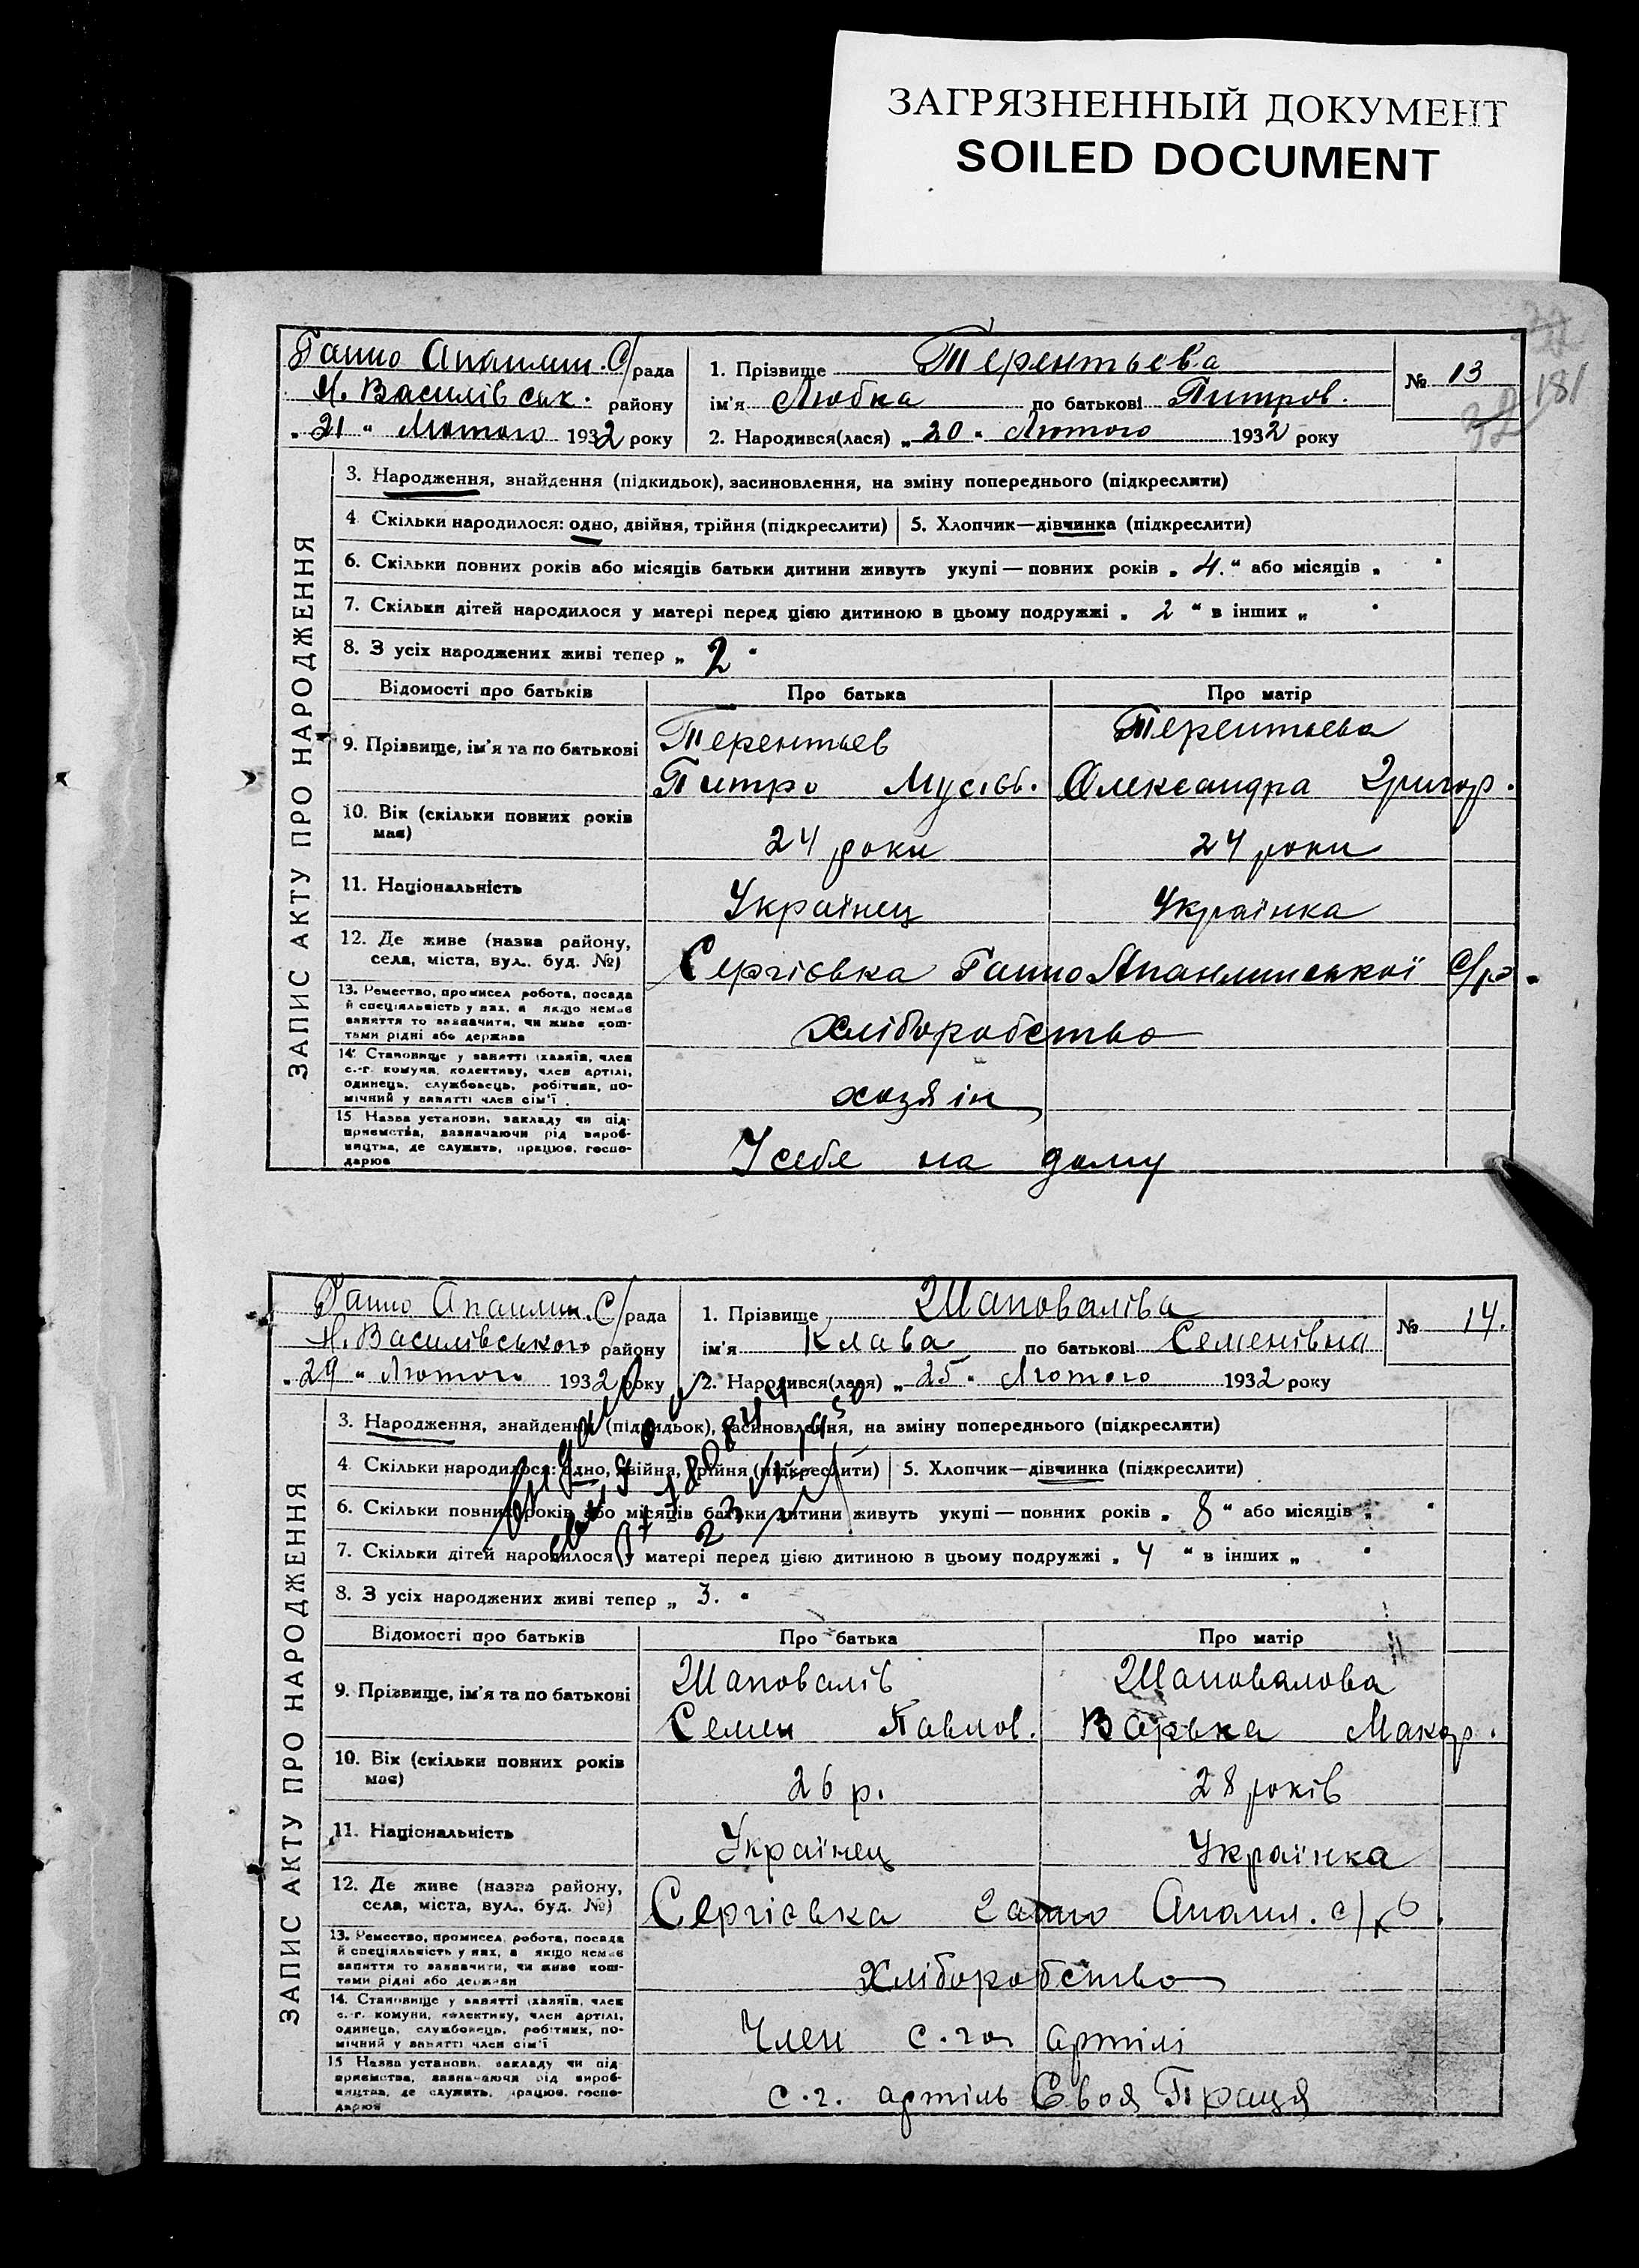 ЗАГРЯЗНЕННЫЙ ДОКУМЕНТ
SOILED DOCUMENT
181
Ганно Апанлин. С/рада
Н. Василівськ. району
„21“ Лютого 1932 року
1. Прізвище Терентьева
ім'я Любка по батькові Питров.
2. Народився(лася) „20“ Лютого 1932 року
№ 13
ЗАПИС АКТУ ПРО НАРОДЖЕННЯ
3. Народження, знайдення (підкидьок), засиновлення, на зміну попереднього (підкреслити)
4 Скільки народилося: одно, двійня, трійня (підкреслити) 5. Хлопчик—дівчинка (підкреслити)
6. Скільки повних років або місяців батьки дитини живуть укупі — повних років „4.“ або місяців „ “
7. Скільки дітей народилося у матері перед цією дитиною в цьому подружжі „2“ в інших „ “
8. З усіх народжених живі тепер „2“
Відомості про батьків Про батька Про матір
9. Прізвище, ім'я та по батькові
Терентьев
Питро Мусієв.
Терентьева
Олександра Григор.
10. Вік (скільки повних років має)
24 роки 24 роки
11. Національність
Українец Українка
12. Де живе (назва району,
села, міста, вул. буд. №)
Сергієвка
13. Ремество, промисел робота, посада
й спеціяльність у них, а якщо немає
заняття то зазначити, чи живе кош-
тами рідні або держава
хліборобство
14. Становище у занятті (хазяїн, член
с.-г. комуни, колективу, член артілі,
одинець, службовець, робітник, по-
мічний у занятті член сім'ї
хозяін
15 Назва установи, закладу чи під-
приємства, зазначаючи рід вироб-
ництва, де служить, працює, госпо-
дарює
У себе на дому
Ганно Апанлин. С/рада
Н. Василівського району
„29“ Лютого 1932 року
1. Прізвище Шаповаліва
ім'я Клава по батькові Семенівна
2. Народився(лася) „25“ Лютого 1932 року
№ 14.
ЗАПИС АКТУ ПРО НАРОДЖЕННЯ
3. Народження, знайдення (підкидьок), засиновлення, на зміну попереднього (підкреслити)
4 Скільки народилося: одно, двійня, трійня (підкреслити) 5. Хлопчик—дівчинка (підкреслити)
6. Скільки повних років або місяців батьки дитини живуть укупі — повних років „8“ або місяців „ “
7. Скільки дітей народилося у матері перед цією дитиною в цьому подружжі „4“ в інших „ “
8. З усіх народжених живі тепер „3.“
Відомості про батьків Про батька Про матір
9. Прізвище, ім'я та по батькові
Шаповалів
Семен Павлов.
Шаповалова
Варька Макар.
10. Вік (скільки повних років має)
26 р. 28 років
11. Національність
Українец Українка
12. Де живе (назва району,
села, міста, вул. буд. №)
Сергієвка
13. Ремество, промисел, робота, посада
й спеціяльність у них, а якщо немає
заняття то зазначити, чи живе кош-
тами рідні або держави
Хліборобство
14. Становище у занятті (хазяїн, член
с.-г. комуни, колективу, член артілі,
одинець, службовець, робітник, по-
мічний у занятті член сім'ї
Член с.го. артілі
15 Назва установи, закладу чи під-
приємства, зазначаючи рід вироб-
ництва, де служить, працює, госпо-
дарює
с.г. артіль Своя Праця